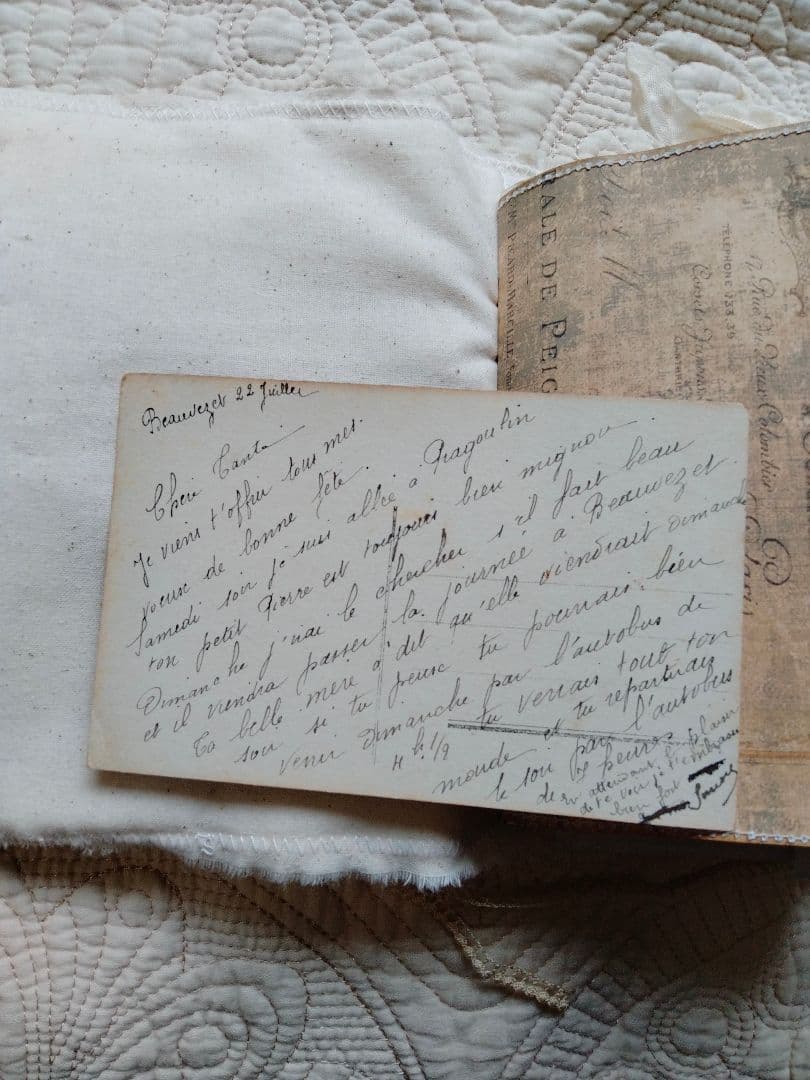 Beauvezet 22 Juillet
Chère Tante
Je viens t'offrir tous mes
voeux de bonne fête.
Samedi soir je suis allée à Pragoulin
ton petit Pierre est toujours bien mignon.
Dimanche j'irai le chercher s'il fait beau
et il viendra passer la journée à Beauvezet
Ta belle mère a dit qu'elle viendrait dimanche
soir si tu peux tu pourrais bien
venir dimanche par l'autobus de
4h 1/2 tu verrais tout ton
monde et tu repartirais
le soir par l'autobus
de heures
en attendant le plaisir
de te voir je t'embrasse
bien fort
ALE DE PEIG
TÉLÉPHONE 133.36
17, Rue du Vieux Colombier
Paris